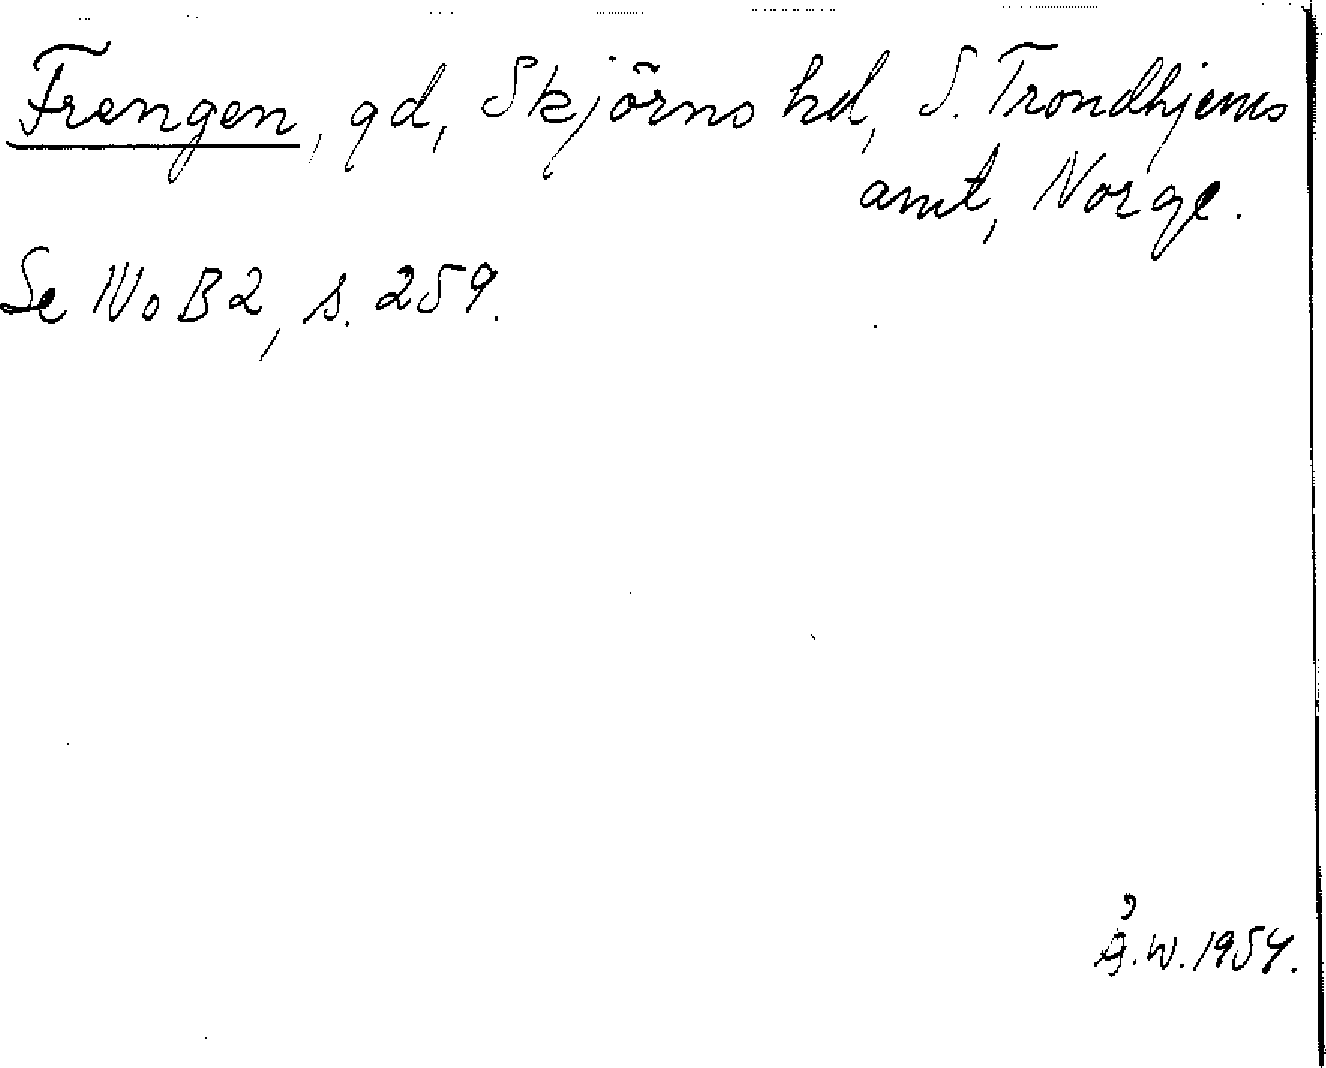 Frengen, gd, Skjörns hd, S. Trondhjems
amt, Norge.
Se NoB 2, s. 259.
Å.W. 1954.